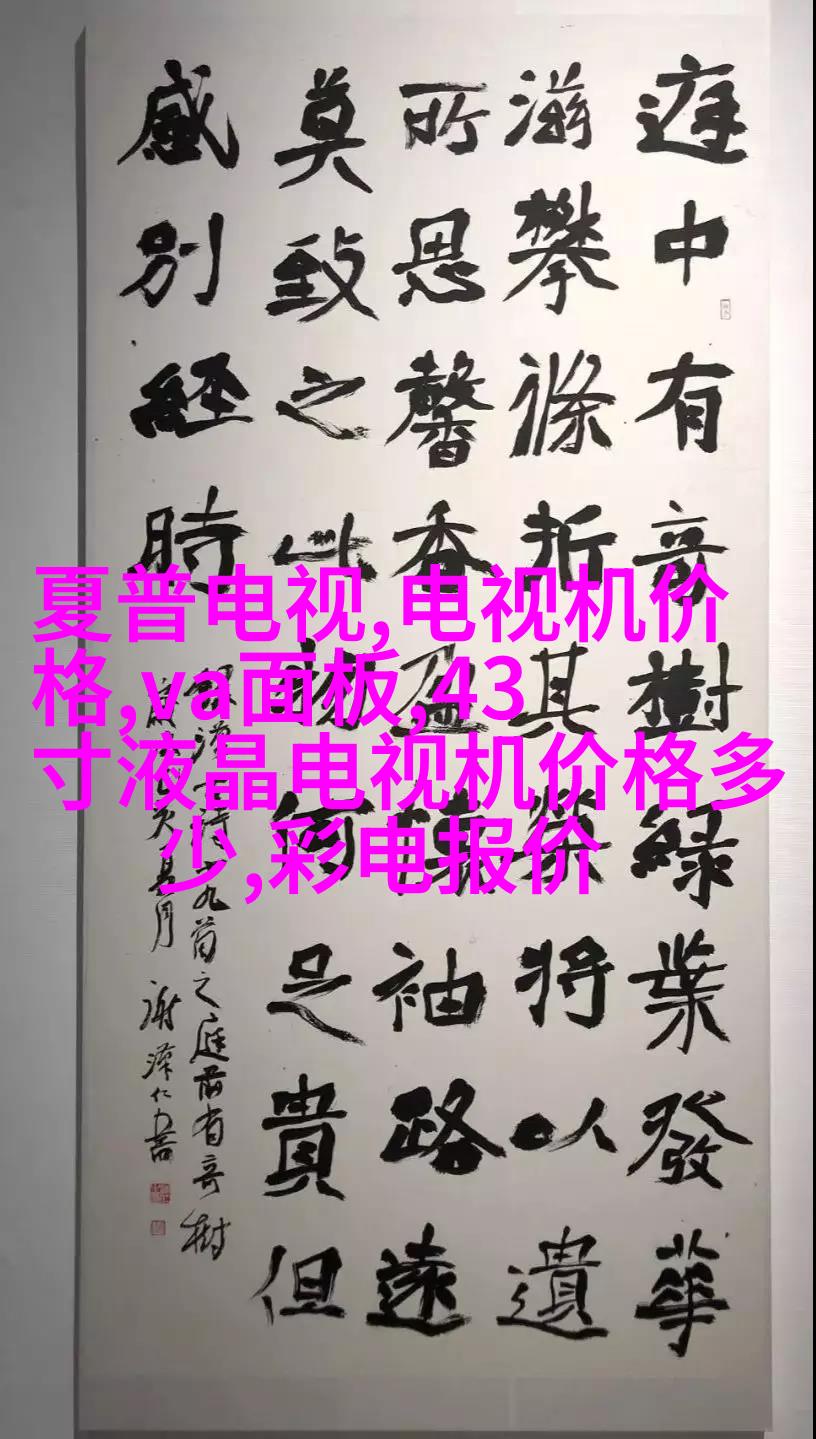 夏普电视,电视机价
格,va面板,43
寸液晶电视机价格多
少,彩电报价
庭中有奇樹緑葉發華
滋攀條折其榮將以遺
所思馨香盈懷袖路遠
莫致之此物何足貴但
感別經時
九首之庭前有奇樹
月 謝澤仁書